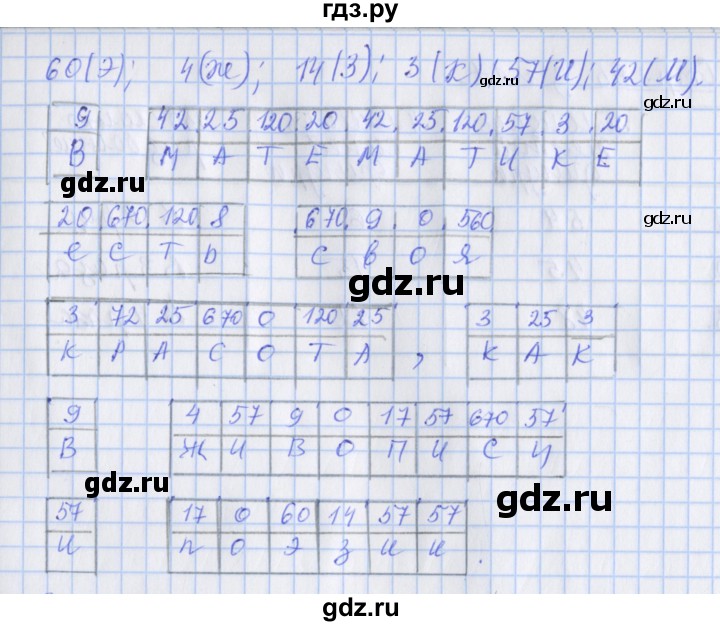 гдз.ру
60(Э); 4(ж); 14(З); 3(К); 57(И); 42(М).
9 42 25 120 20 42 25 120 57 3 20
В М А Т Е М А Т И К Е
gdz.ru gdz.ru
20 670 120 8 670 9 0 560
gdz.ru
е с т ь с в о я
gdz.ru
3 72 25 670 0 120 25 3 25 3
К Р А С О Т А , К А К
9 4 57 9 0 17 57 670 57
В Ж И В О П И С И
gdz.ru
gdz.ru
57 17 0 60 14 57 57
И п о э з и и .
gdz.ru